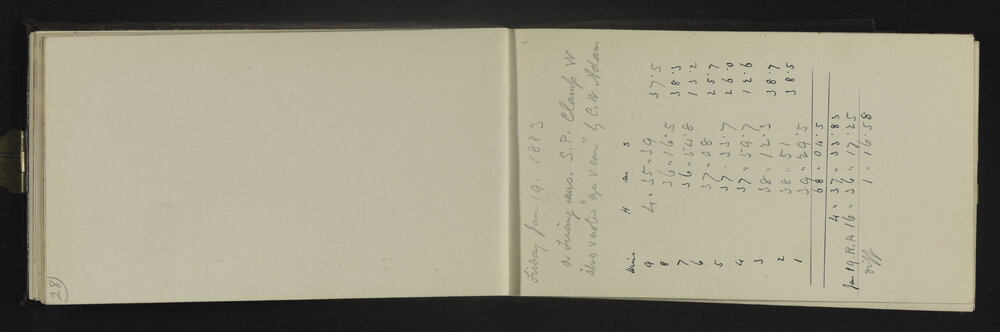 28
Friday Jan 19. 1883
α Tring obs. S. P. Clamp W
also & noted "eye & ear" by C. W. Adam
Wire H m s
9 4 " 35 " 39 37.5
8 36 " 16.5 38.3
7 36 " 54.8 13.2
6 37 " 08 25.7
5 37 " 33.7 26.0
4 37 " 59.7 12.6
3 38 " 12.3 38.7
2 38 " 51 38.5
1 39 " 29.5
68 " 04.5
4 " 37 " 33.83
Jan 19 R.A 16 " 36 " 17.25
Diff 1 " 16.58